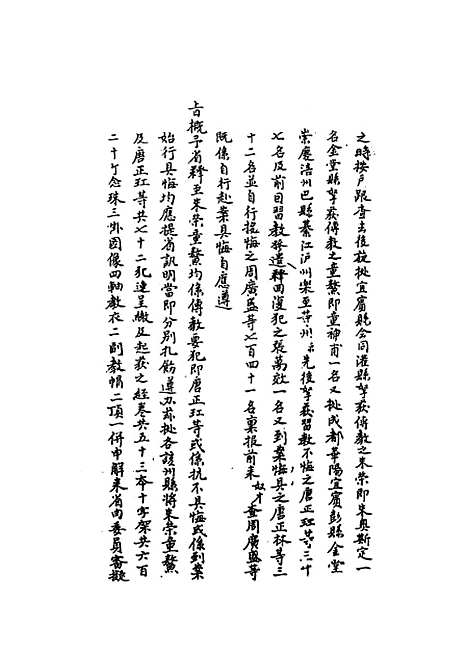 之時按戶跟查去後茲據宜賓縣會同灌縣拏獲傳教之朱榮即朱奧斯定一
名金堂縣拏獲傳教之童鰲即童神甫一名又據成都華陽宜賓彭縣金堂
崇慶涪州巴縣綦江瀘州樂至等州縣先後拏獲習教不悔之唐正玒等三十
七名及前因習教擬遣釋回復犯之張萬效一名又到案悔具之唐正林等三
十二名並自行投悔之周廣盛等七百四十一名稟報前來奴才查周廣盛等
既係自行赴案具悔自應遵
旨概予省釋至朱榮童鰲均係傳教要犯即唐正玒等或係抗不具悔或係到案
始行具悔均應提省訊明當即分別札飭遵辦茲據各該州縣將朱榮童鰲
及唐正玒等共七十二犯連呈繳及起獲之經卷共五十三本十字架共六百
二十個念珠三串圖像四軸教衣二副教帽二頂一併申解來省由委員審擬